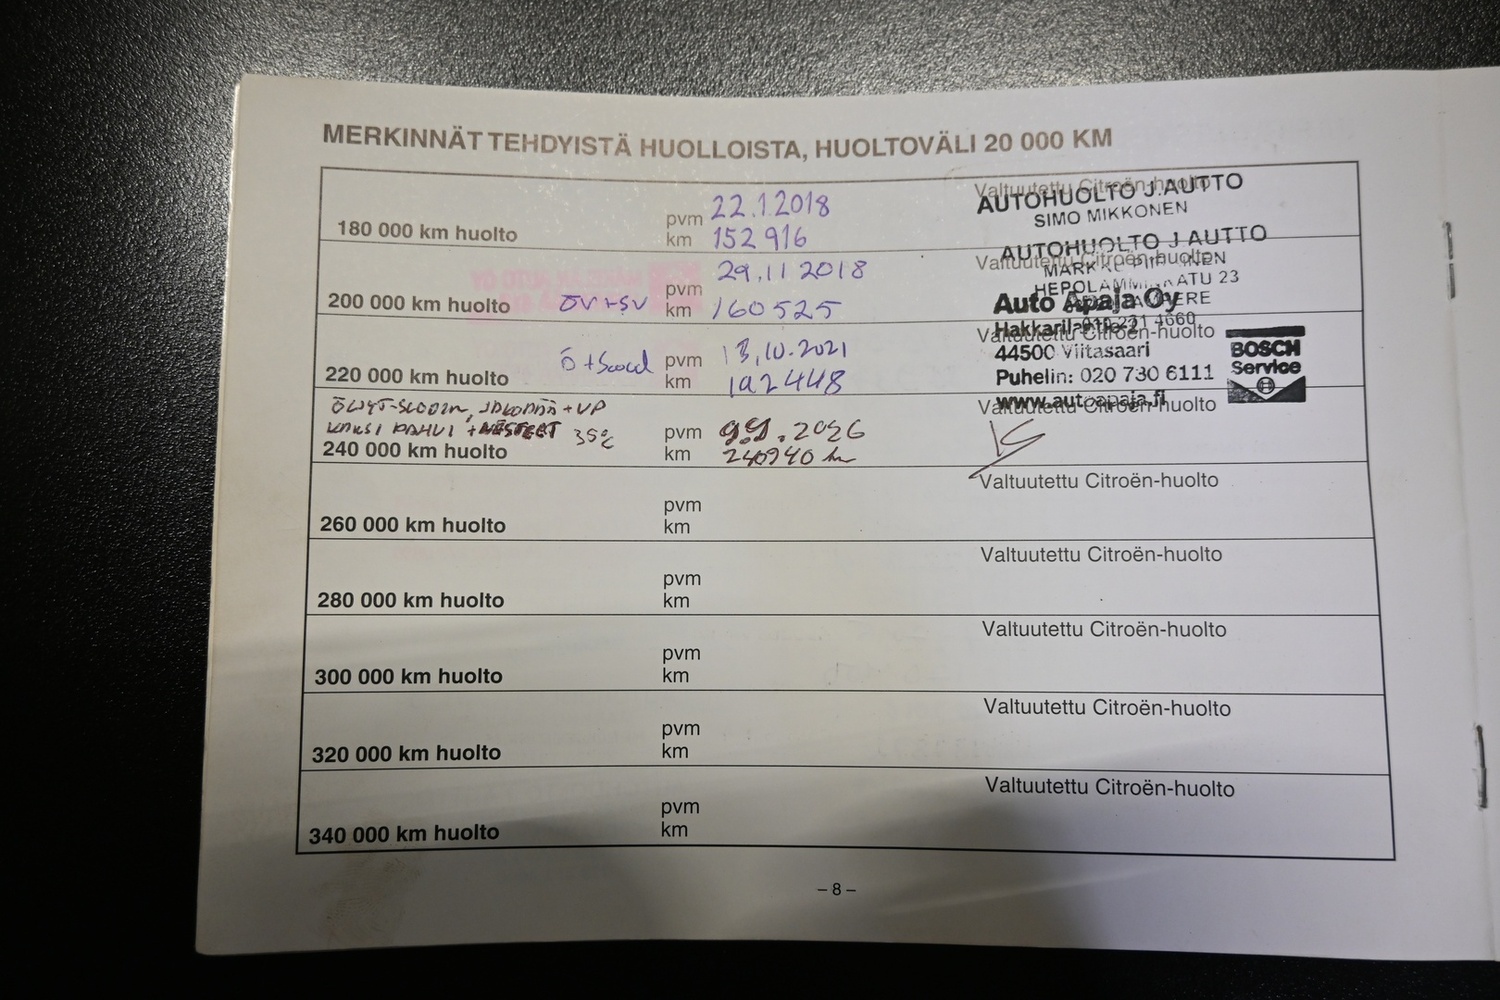 MERKINNÄT TEHDYISTÄ HUOLLOISTA, HUOLTOVÄLI 20 000 KM
180 000 km huolto
pvm 22.1.2018
km 152 916
Valtuutettu Citroën-huolto
AUTOHUOLTO J.AUTTO
SIMO MIKKONEN
200 000 km huolto ÖV+SV
pvm 29.11 2018
km 160525
Valtuutettu Citroën-huolto
AUTOHUOLTO J AUTTO
HEPOLAMMINKATU 23
220 000 km huolto
pvm 13.10.2021
km 192448
Valtuutettu Citroën-huolto
Auto Apaja Oy
44500 Viitasaari
Puhelin: 020 730 6111
www.autoapaja.fi
BOSCH
Service
240 000 km huolto
pvm
km 240940 km
Valtuutettu Citroën-huolto
260 000 km huolto
pvm
km
Valtuutettu Citroën-huolto
280 000 km huolto
pvm
km
Valtuutettu Citroën-huolto
300 000 km huolto
pvm
km
Valtuutettu Citroën-huolto
320 000 km huolto
pvm
km
Valtuutettu Citroën-huolto
340 000 km huolto
pvm
km
Valtuutettu Citroën-huolto
– 8 –